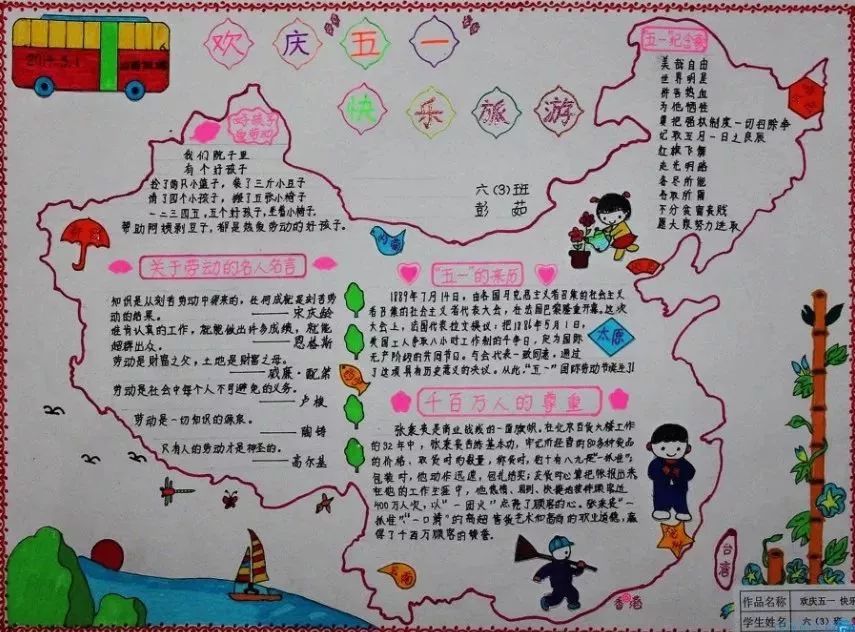 欢庆五一
快乐旅游
六(3)班
彭茹
好孩子
爱劳动
我们院子里
有个好孩子
拾了两只小篮子，装了三斤小豆子
请了四个小孩子，搬了五张小椅子
一二三四五，五个好孩子，坐着小椅子
帮助阿姨剥豆子，都是热爱劳动的好孩子。
"五一"纪念歌
美哉自由
世界明星
拼吾热血
为他牺牲
要把强权制度一切扫除净
记取五月一日之良辰
红旗飞舞
走光明路
各尽所能
各取所需
不分贫富贵贱
愿大家努力进取
关于劳动的名人名言
知识是从刻苦劳动中得来的，任何成就是刻苦劳
动的结果。
——宋庆龄
谁肯认真的工作，就能做出许多成绩，就能
超群出众。
——恩格斯
劳动是财富之父，土地是财富之母。
——威廉·配第
劳动是社会中每个人不可避免的义务。
——卢梭
劳动是一切知识的源泉。
——陶铸
只有人的劳动才是神圣的。
——高尔基
"五一"的来历
1889年7月14日，由各国马克思主义者召集的社会主义
者召集的社会主义者代表大会，在法国巴黎隆重开幕。这次
大会上，法国代表拉文提议：把1886年5月1日，
美国工人争取八小时工作制的斗争日，定为国际
无产阶级的共同节日。与会代表一致同意，通过
了这项具有历史意义的决议。从此，"五一"国际劳动节诞生了！
千百万人的尊重
张秉贵是商业战线的一面旗帜。在北京百货大楼工作
的32年中，张秉贵苦练基本功，牢记所经营的80多种食品
的价格、
包装时，他动作迅速，包扎结实；
在他的工作生涯中，他热情、周到、
400万人次，以"一团火"点亮了顾客的心。张秉贵"一
抓准""一口清"的高超售货艺术和高尚的职业道德，赢
得了千百万顾客的赞誉。
太原
云南
香港
台湾
作品名称 欢庆五一 快乐
学生姓名 六(3)班